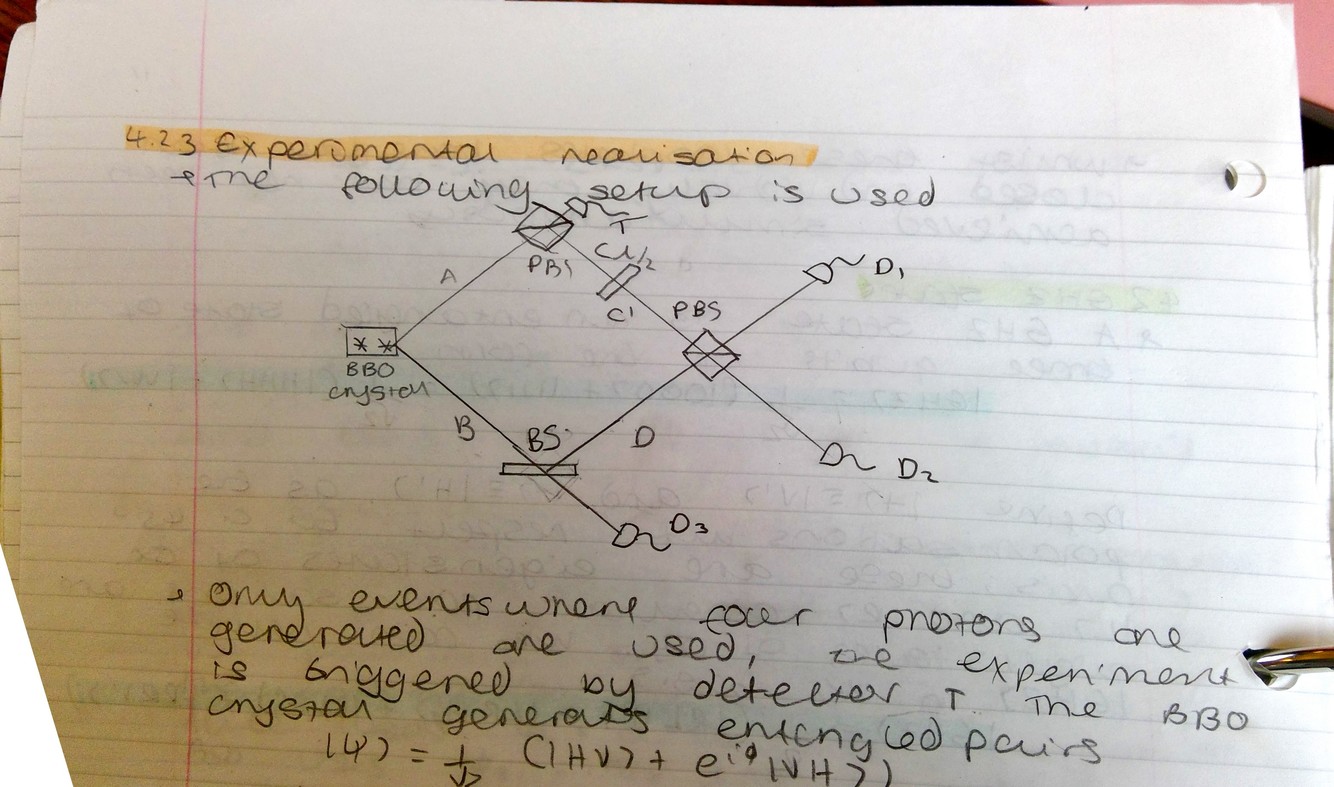 4.2.3 Experimental realisation
→ The following setup is used
T
Cλ/2
PBS
A
C'
PBS
D1
BBO
crystal
B
BS
D
D2
D3
→ Only events where four photons are
generated are used, the experiment
is triggered by detector T. The BBO
crystal generates entangled pairs
|ψ⟩ = 1/√2 (|HV⟩ + e^iφ |VH⟩)